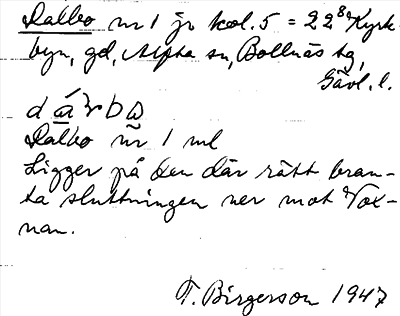 Dalbo nr 1 jr kol. 5 = 22⁸ Kyrk-
byn, gd, Alfta sn, Bollnäs tg,
Gävl. l.
Dalbo nr 1 ml
Ligger på den där rätt bran-
ta sluttningen ner mot Vox-
nan.
T. Birgerson 1947